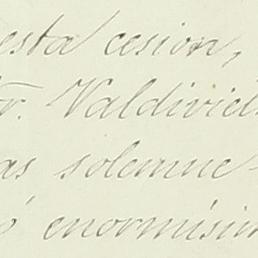 esta cesion,
Sr. Valdiviels
as solemne-
ó enormisim